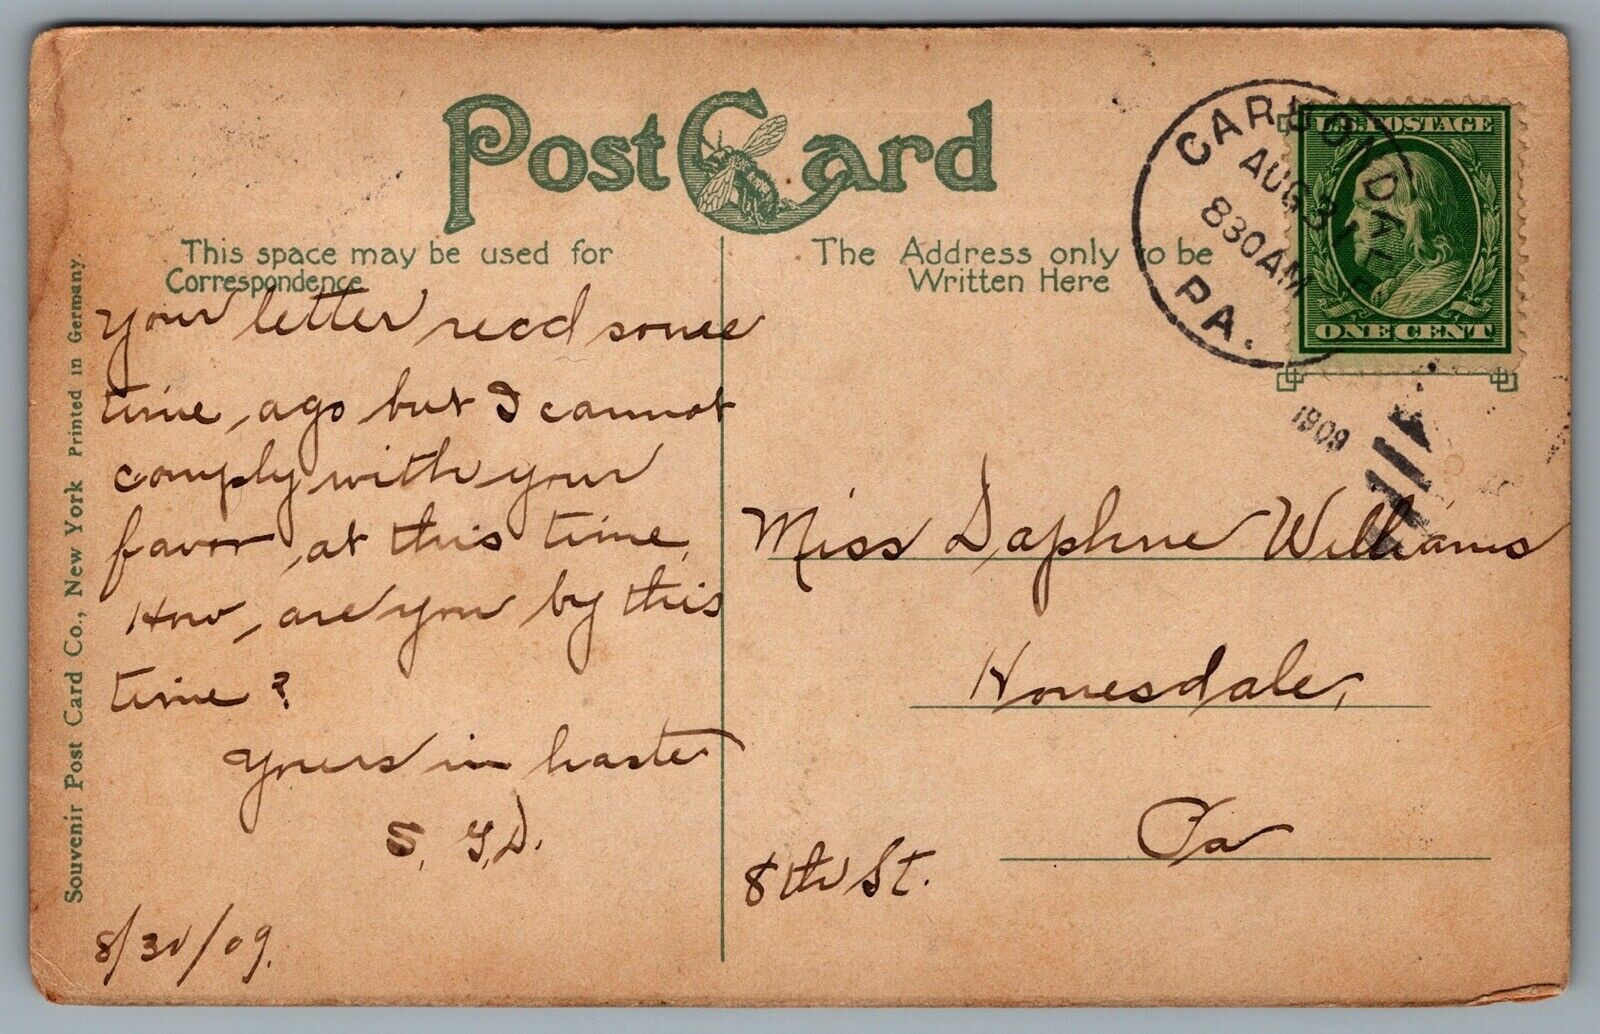 Post Card
This space may be used for
Correspondence
The Address only to be
Written Here
CARBONDALE
AUG 31
830AM
PA.
1909
U.S. POSTAGE
ONE CENT
Your letter recd some
time, ago but I cannot
comply with your
favor, at this time,
How, are you by this
time?
Yours in haste
S. G. D.
8/30/09.
Miss Daphne Williams
Honesdale,
Pa
8th St.
Souvenir Post Card Co., New York Printed in Germany.